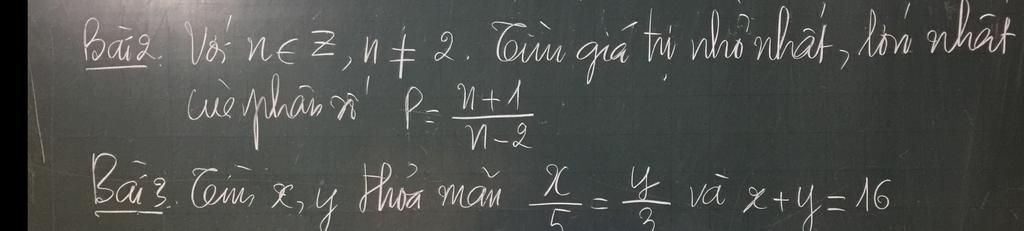 Bài 2. Với n ∈ Z, n ≠ 2. Tìm giá trị nhỏ nhất, lớn nhất
của phân số P = \frac{n+1}{n-2}
Bài 3. Tìm x, y thỏa mãn \frac{x}{5} = \frac{y}{3} và x+y=16